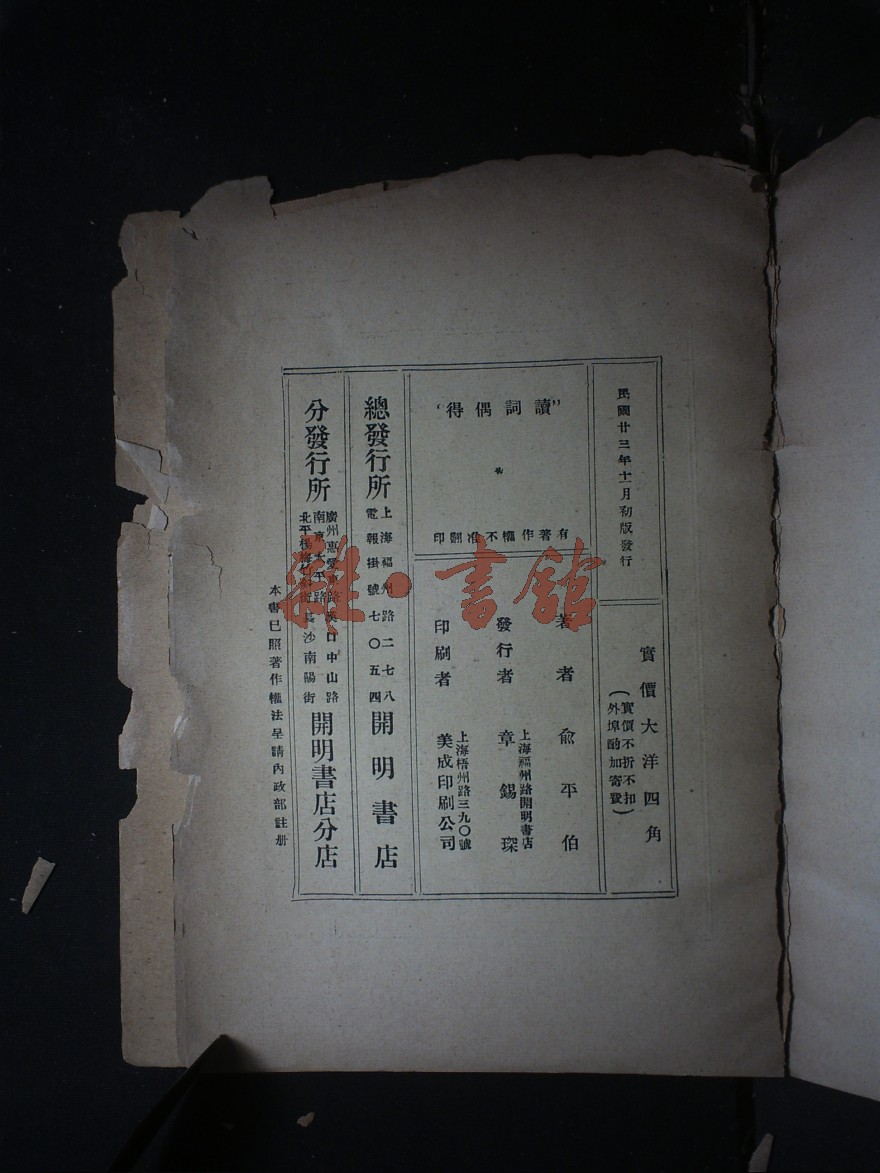 民國廿三年十一月初版發行
實價大洋四角
(實價不折不扣
外埠酌加寄費)
"讀詞偶得"
有著作權不准翻印
著者 俞平伯
發行者 上海福州路開明書店
章錫琛
印刷者 上海梧州路三九〇號
美成印刷公司
總發行所 上海福州路二七八
電報掛號七〇五四 開明書店
分發行所 廣州惠愛東路漢口中山路
南京太平路
北平楊梅竹斜街長沙南陽街 開明書店分店
本書已照著作權法呈請內政部註册
雜·書館